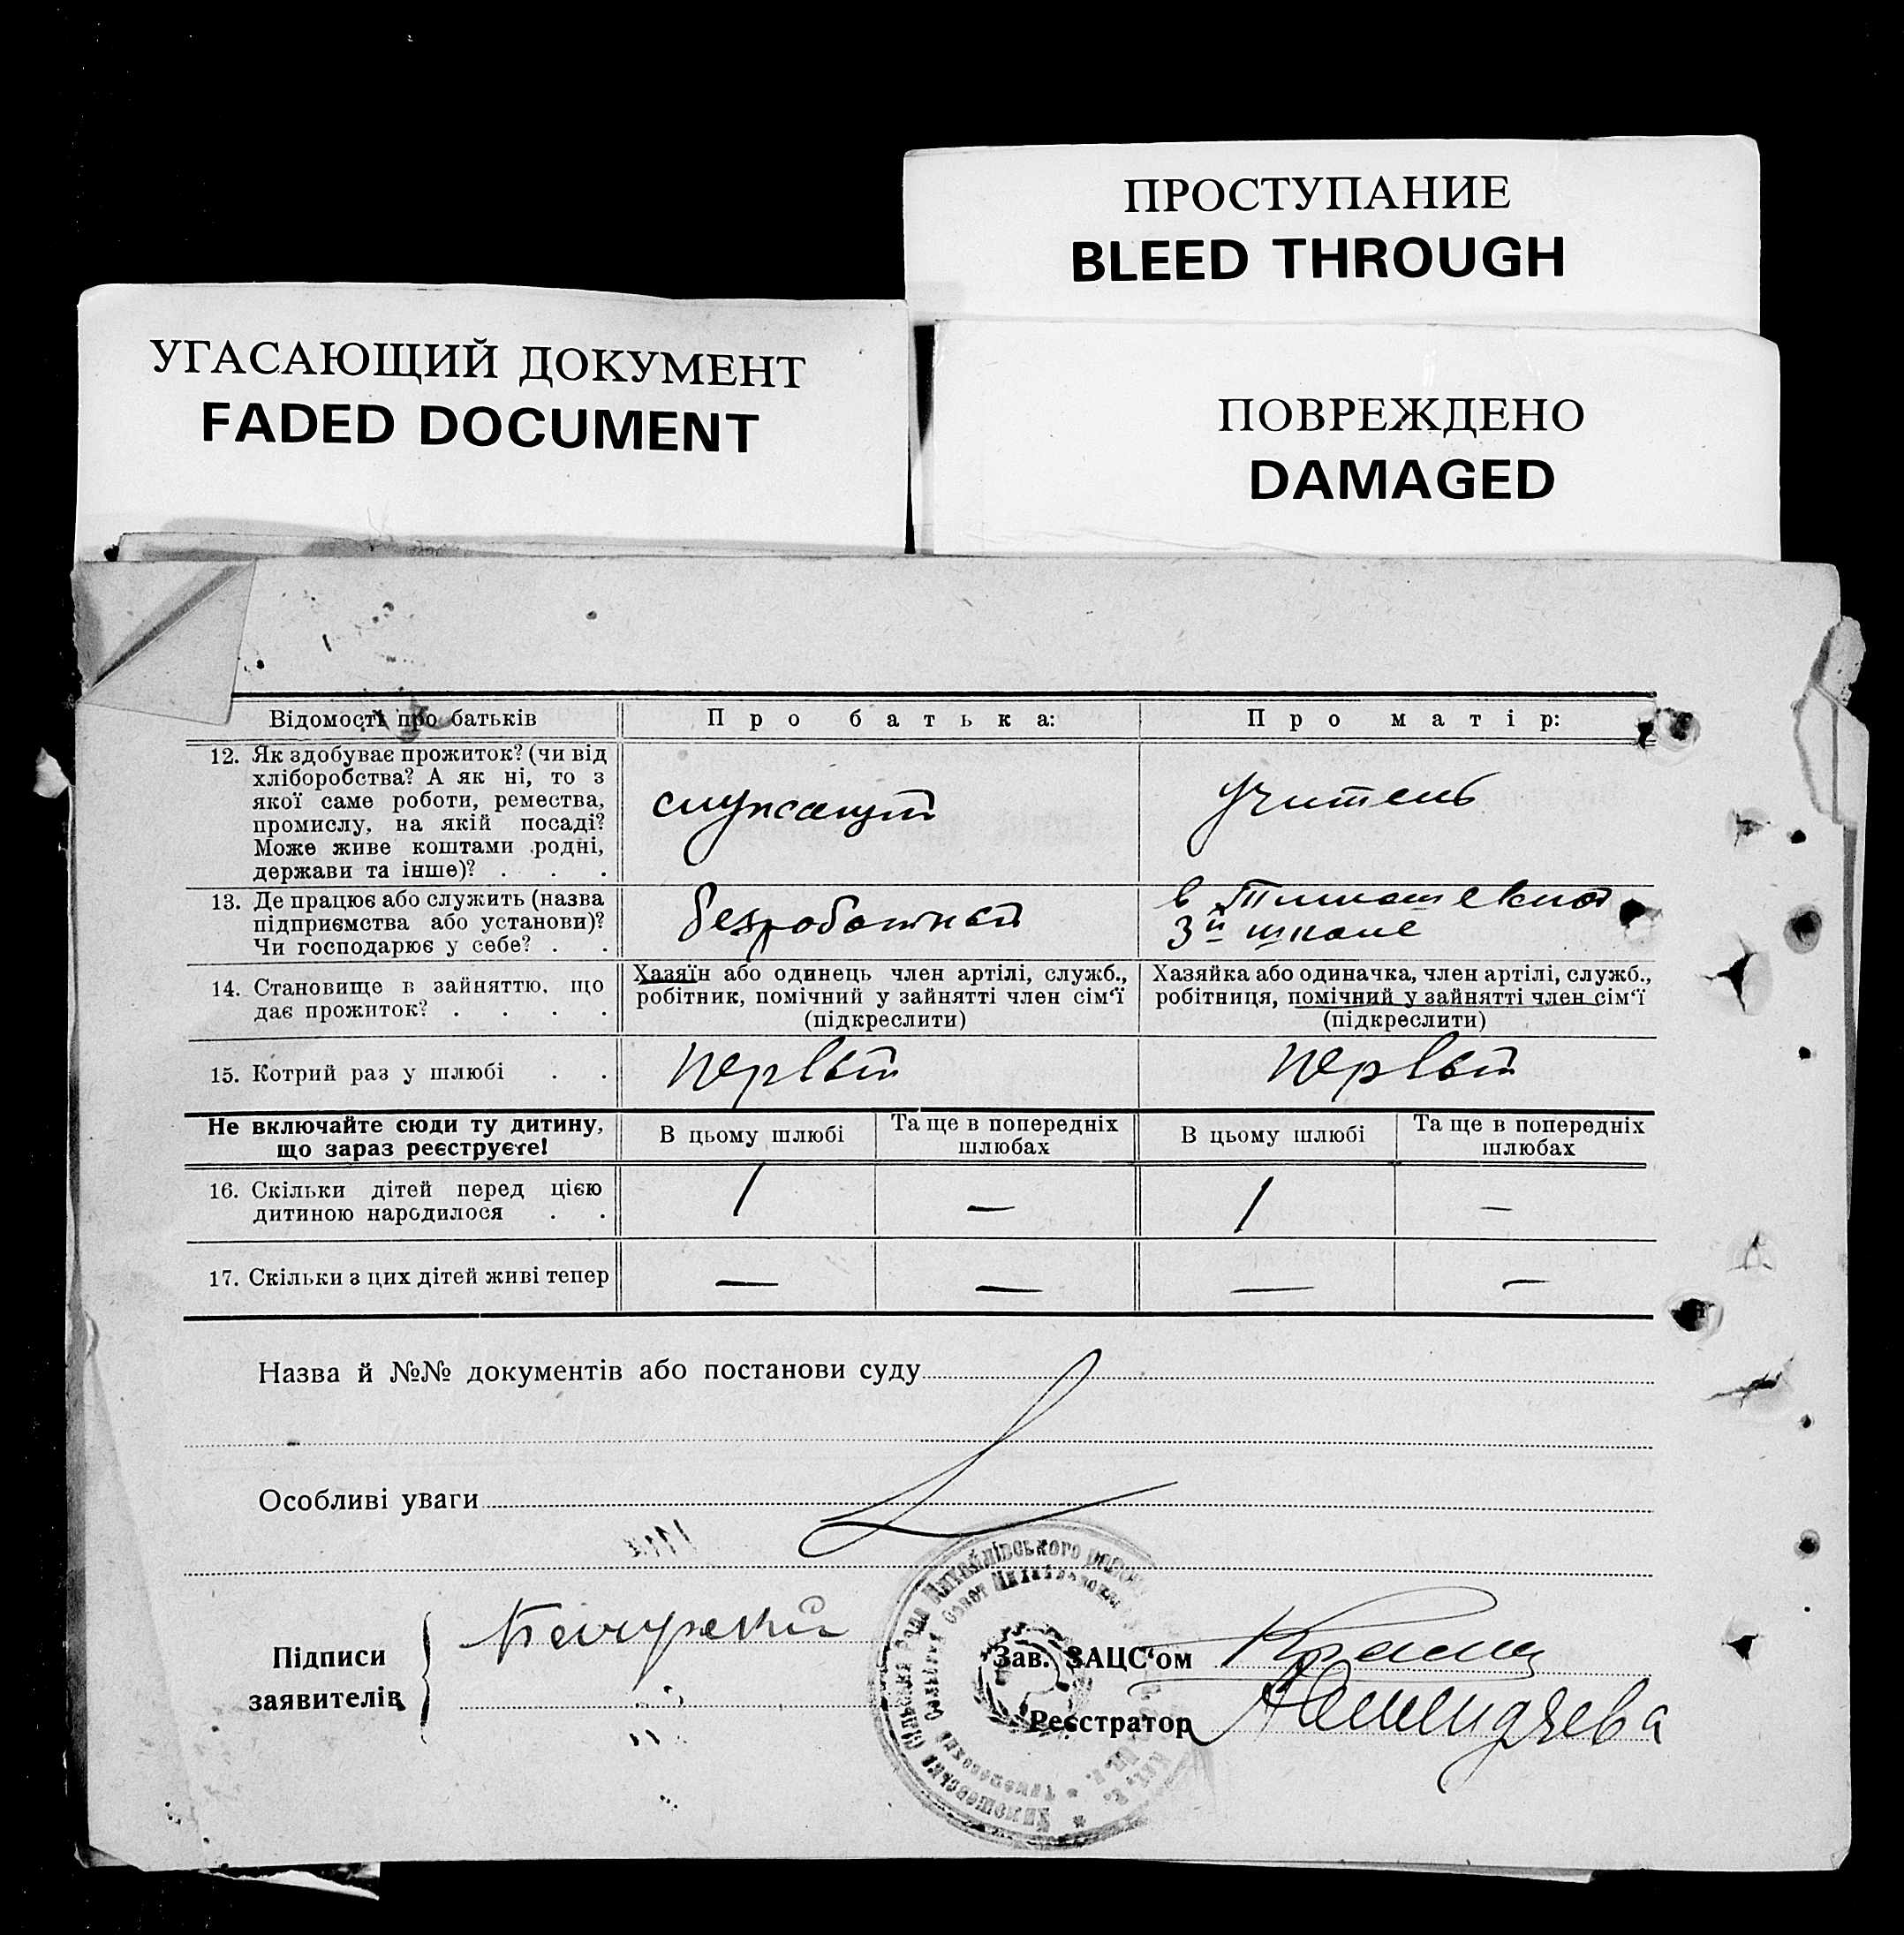 ПРОСТУПАНИЕ
BLEED THROUGH
УГАСАЮЩИЙ ДОКУМЕНТ
FADED DOCUMENT
ПОВРЕЖДЕНО
DAMAGED
Відомості про батьків
Про батька:
Про матір:
12. Як здобуває прожиток? (чи від
хліборобства? А як ні, то з
якої саме роботи, ремества,
промислу, на якій посаді?
Може живе коштами родні,
держави та інше)? . . .
служащий
учитель
13. Де працює або служить (назва
підприємства або установи)?
Чи господарює у себе? . .
безработный
в Тимошевкой
3й школе
14. Становище в зайняттю, що
дає прожиток? . . . .
Хазяїн або одинець член артілі, служб.,
робітник, помічний у зайнятті член сім'ї
(підкреслити)
Хазяйка або одиначка, член артілі, служб.,
робітниця, помічний у зайнятті член сім'ї
(підкреслити)
15. Котрий раз у шлюбі . .
первый
первый
Не включайте сюди ту дитину,
що зараз реєструєте!
В цьому шлюбі
Та ще в попередніх
шлюбах
В цьому шлюбі
Та ще в попередніх
шлюбах
16. Скільки дітей перед цією
дитиною народилося . .
1
—
1
—
17. Скільки з цих дітей живі тепер
—
—
—
—
Назва й №№ документів або постанови суду
Особливі уваги
Підписи
заявителів
Зав. ЗАЦС'ом
Реєстратор
Сільська Рада Михайлівського